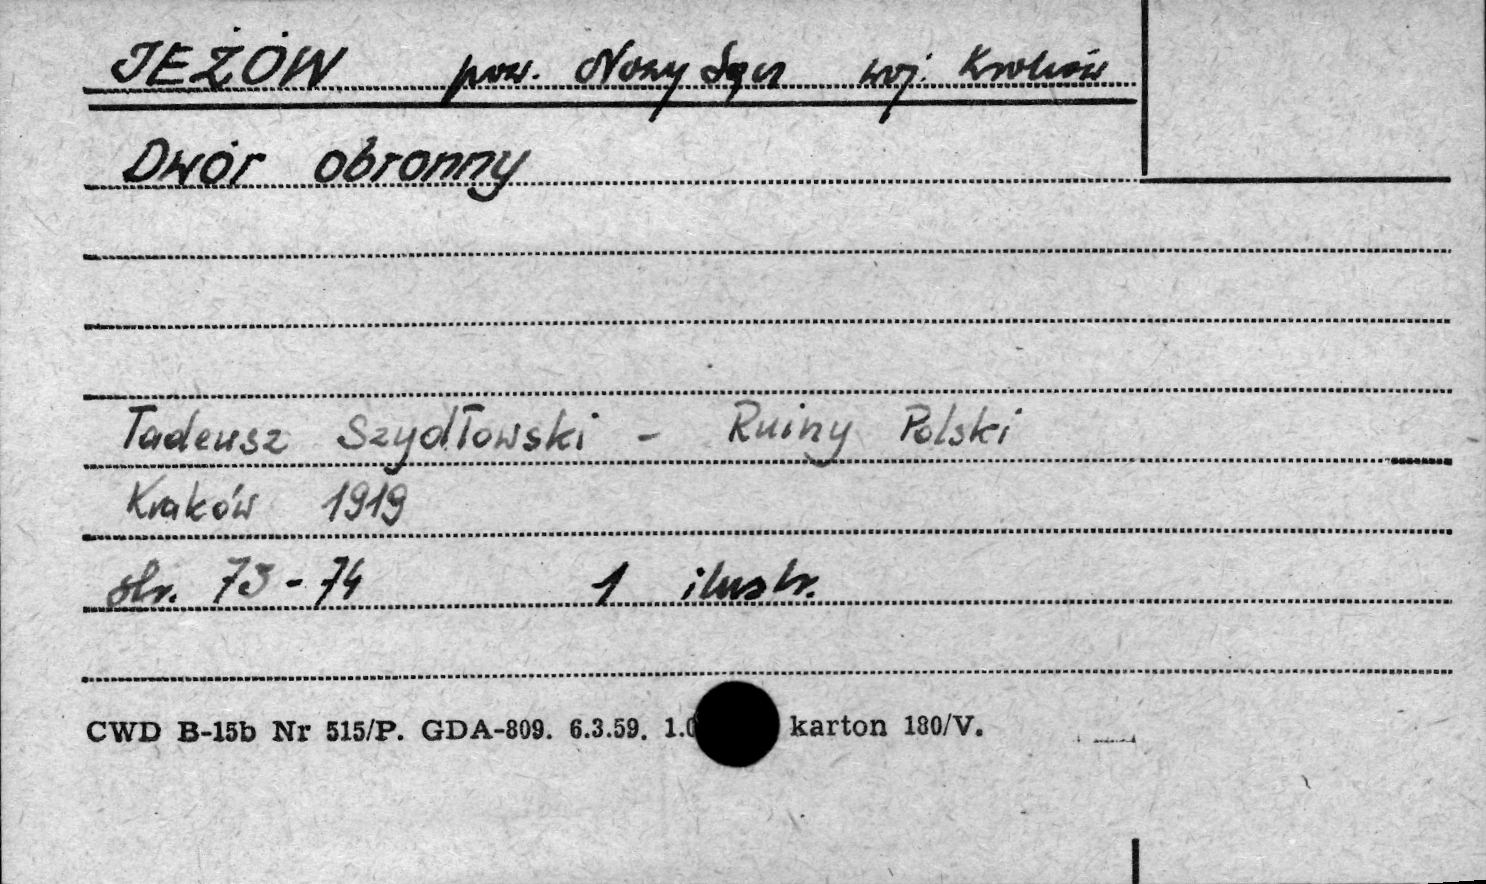 JEŻÓW pow. Nowy Sącz woj. Kraków
Dwór obronny
Tadeusz Szydłowski - Ruiny Polski
Kraków 1919
str. 73-74 1 ilustr.
CWD B-15b Nr 515/P. GDA-809. 6.3.59. 1.0 karton 180/V.